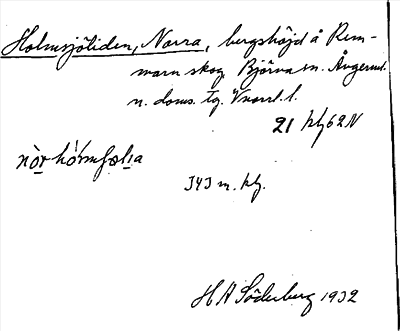 Holmsjöliden, Norra, bergshöjd å Rem-
marn skog, Björna sn. Ångerml.
n. doms. tg. Vnorrl. l.
21 kbf 62 N
nòr hólmfœlıa
343 m. höj.
H A Söderberg 1932